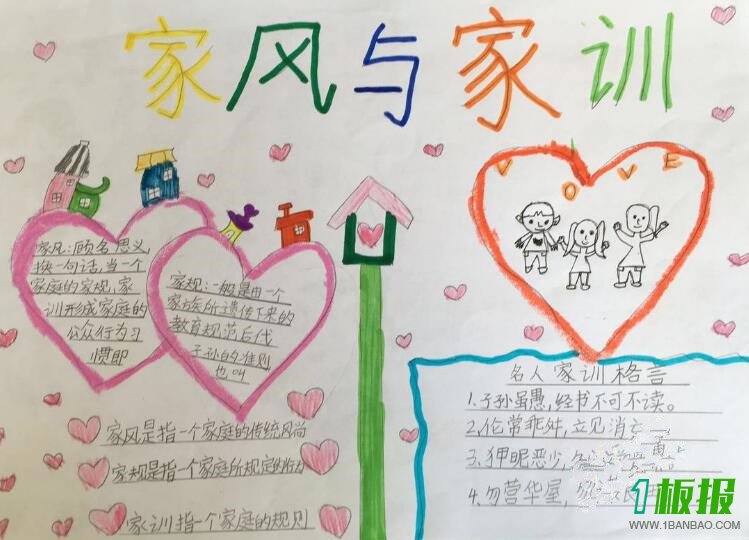 家风与家训
VOVE
家风:顾名思义,
换一句话,当一个
家庭的家规,家
训形成家庭的
公众行为习
惯即
家规:一般是由一个
家族所遗传下来的
教育规范后代
子孙的准则,
也叫
家风是指一个家庭的传统风尚
家规是指一个家庭所规定的行为
家训指一个家庭的规则
名人家训格言
1.子孙虽愚,经书不可不读。
2.伦常乖舛,立见消亡
3.狎昵恶少,
4.勿营华屋,
1板报
WWW.1BANBAO.COM